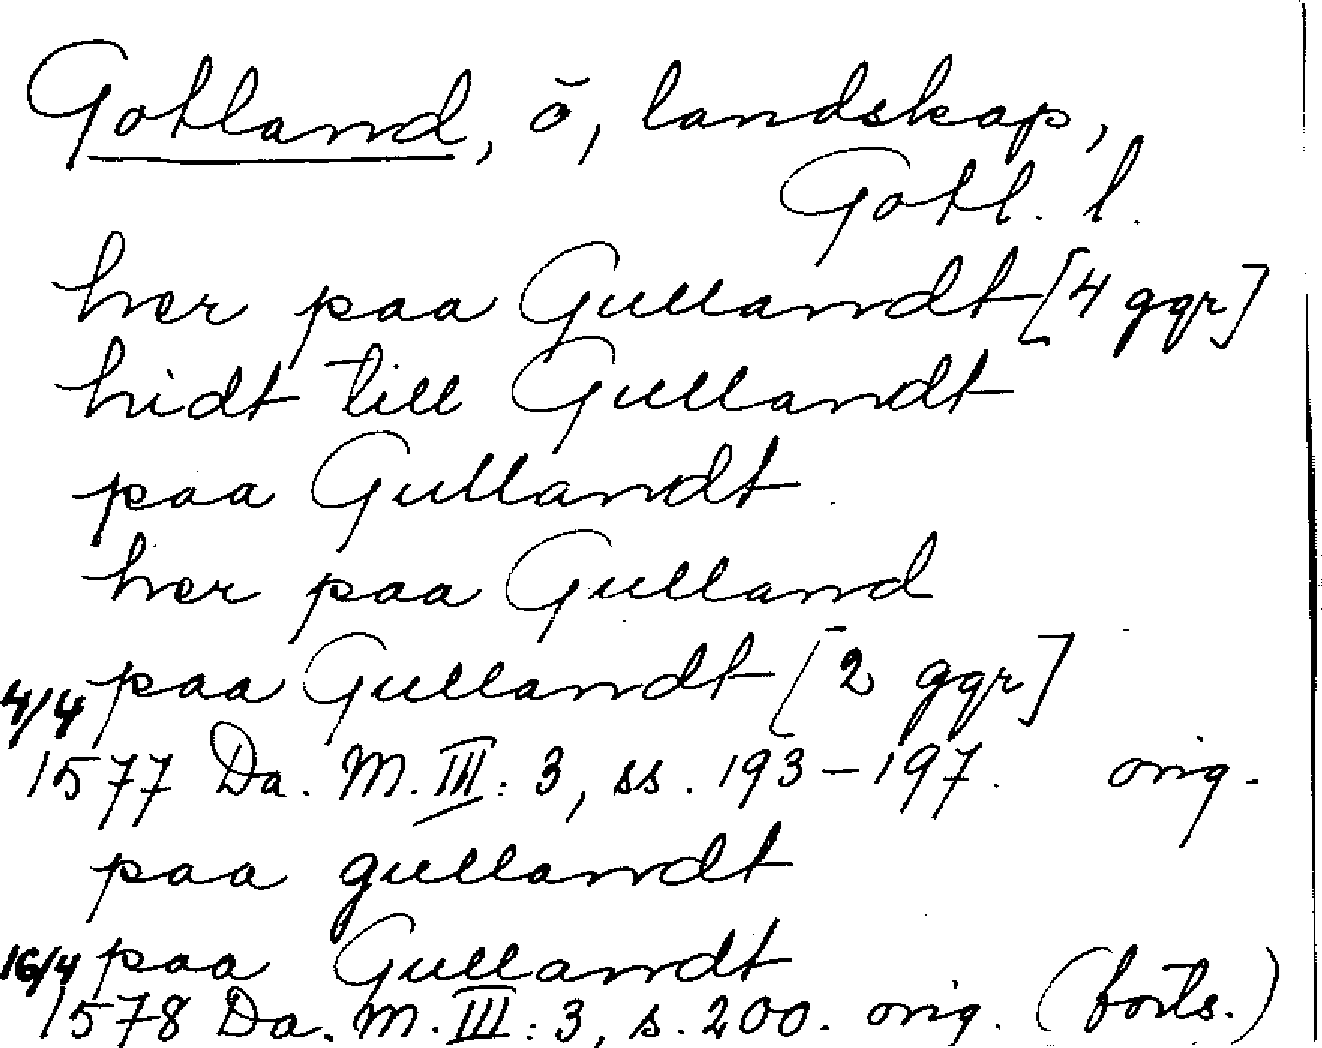 Gotland, ö, landskap,
Gotl. l.
her paa Gullandt [4 ggr]
hidt till Gullandt
paa Gullandt
her paa Gulland
4/4 paa Gullandt [2 ggr]
1577 Da. M. III: 3, ss. 193-197. orig.
paa gullandt
16/4 paa Gullandt
1578 Da. M. III: 3, s. 200. orig. (forts.)